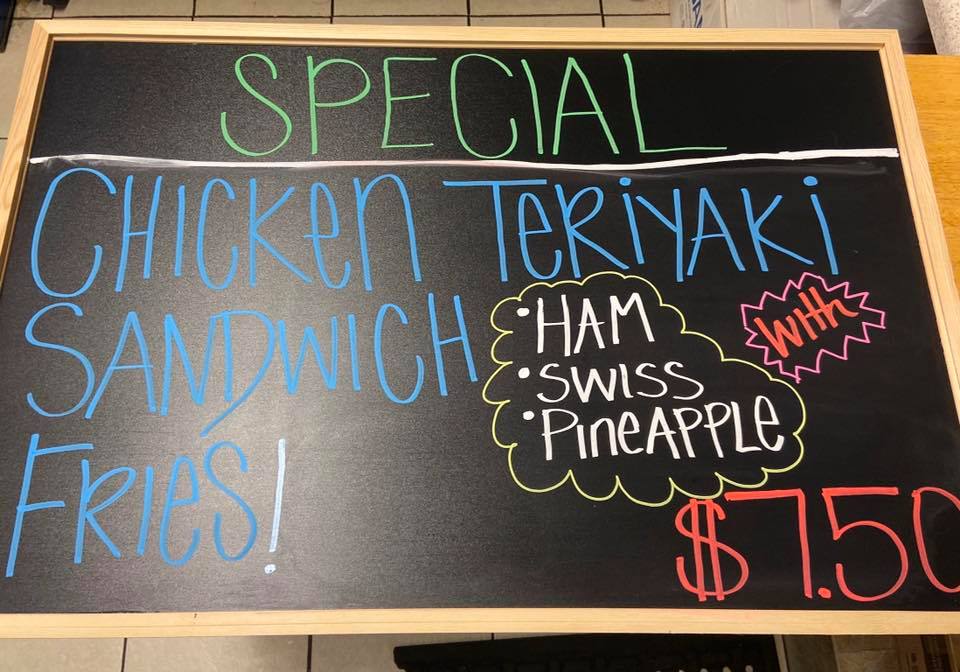 SPECIAL
CHICKEN TERiYAKi
with
SANDWICH
• HAM
• SWISS
• PineAPPLE
FRIES!
$7.50